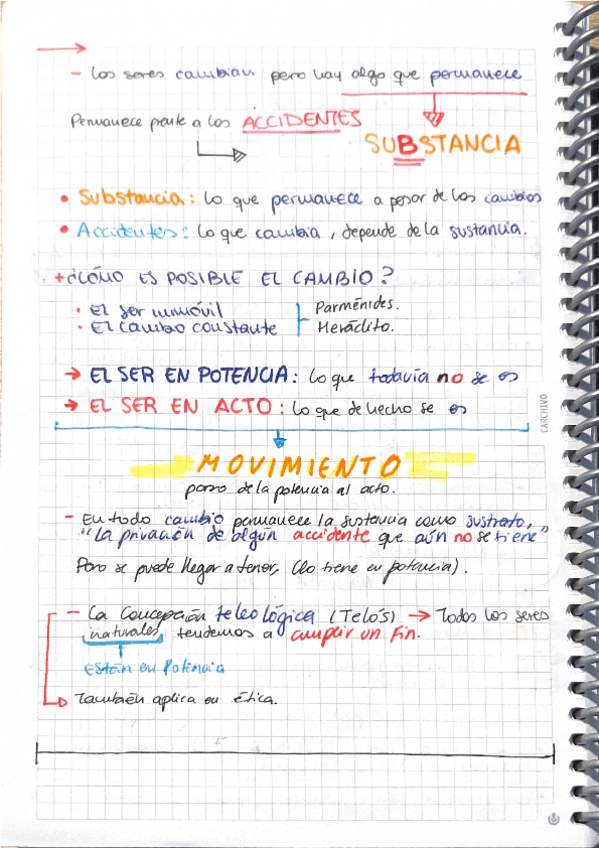 - Los seres cambian pero hay algo que permanece
Permanece frente a los ACCIDENTES
SUBSTANCIA
• Substancia: lo que permanece a pesar de los cambios
• Accidentes: lo que cambia, depende de la sustancia.
+ ¿CÓMO ES POSIBLE EL CAMBIO?
• El ser inmóvil Parménides.
• El cambio constante Heráclito.
→ EL SER EN POTENCIA: lo que todavía no se es
→ EL SER EN ACTO: lo que de hecho se es
CARCHIVO
MOVIMIENTO
paso de la potencia al acto.
- En todo cambio permanece la sustancia como sustrato,
"La privación de algún accidente que aún no se tiene"
Pero se puede llegar a tener, (lo tiene en potencia).
- La Concepción teleológica (Telós) → Todos los seres
naturales tendemos a cumplir un Fin.
Están en Potencia
También aplica en ética.